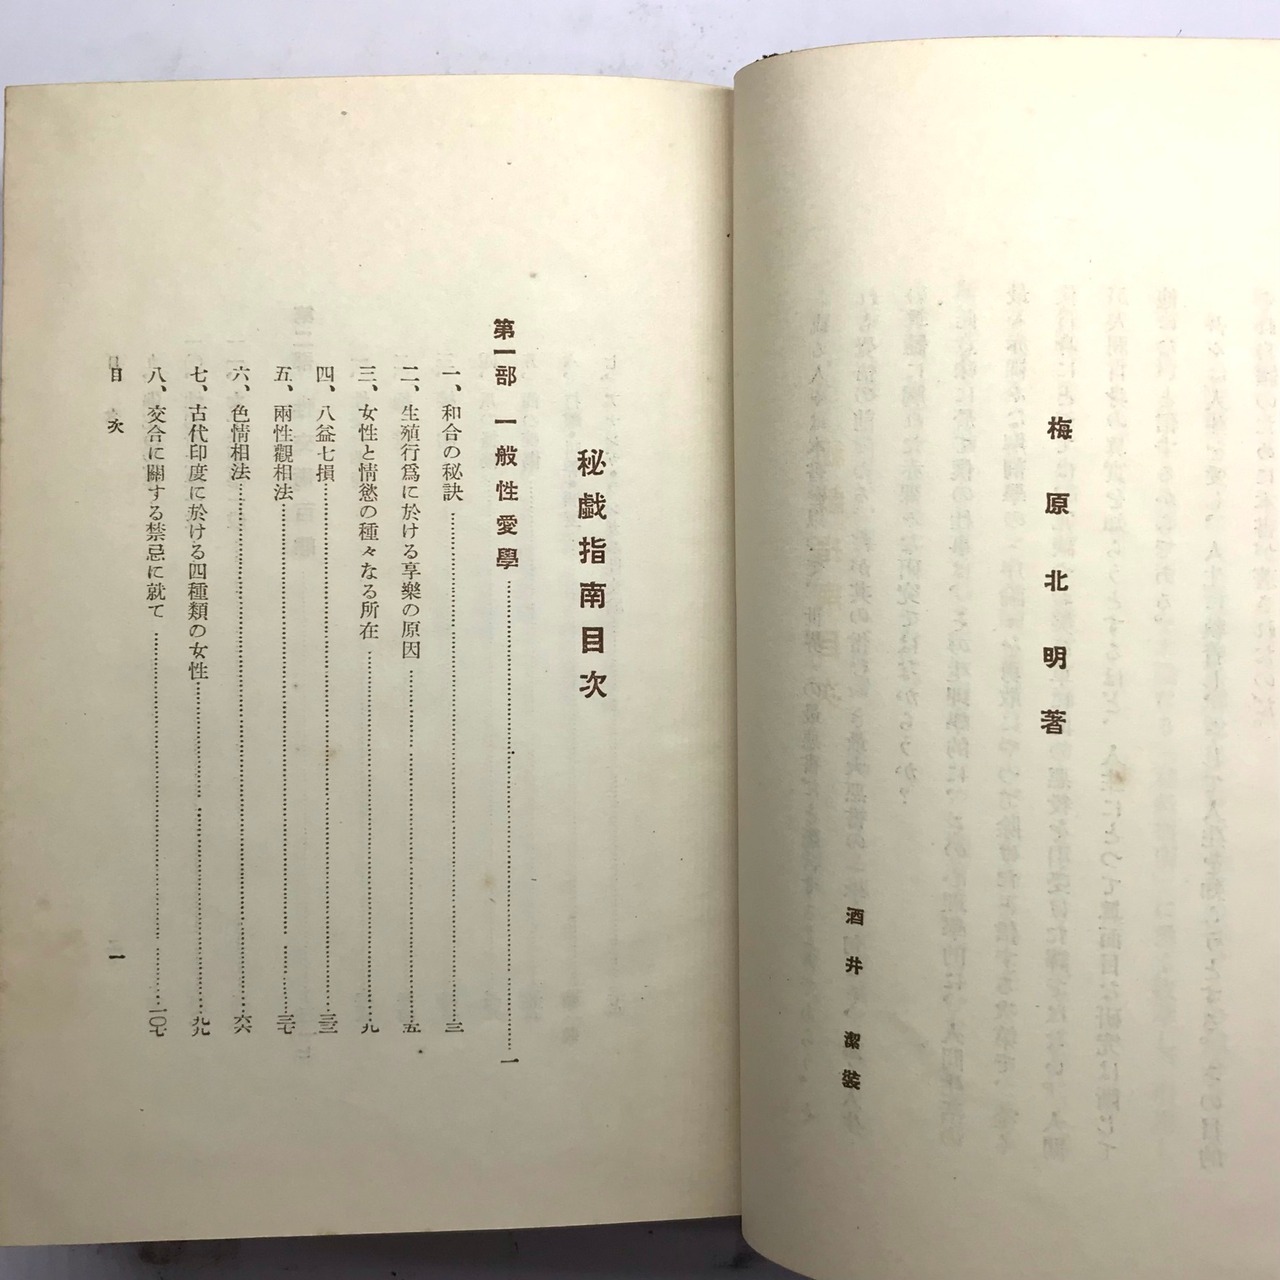 梅原北明著
酒井 潔裝
秘戲指南目次
第一部 一般性愛學…………一
一、和合の秘訣…………三
二、生殖行爲に於ける享樂の原因…………五
三、女性と情慾の種々なる所在…………九
四、八益七損…………三三
五、兩性觀相法…………三七
六、色情相法…………六六
七、古代印度に於ける四種類の女性…………九九
八、交合に關する禁忌に就て…………一〇七
目次
一